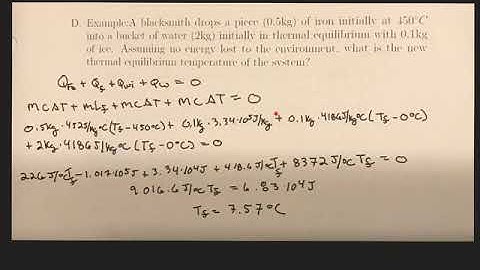 D. Example:A blacksmith drops a piece (0.5kg) of iron initially at 450°C
into a bucket of water (2kg) initially in thermal equilibrium with 0.1kg
of ice. Assuming no energy lost to the environment, what is the new
thermal equilibrium temperature of the system?
+ Qf + Qwi + Qw = 0
mcΔT + mLf + mcΔT + mcΔT = 0
0.5kg·452J/kg°C(Tf-450°C) + 0.1kg·3.34·10⁵J/kg + 0.1kg·4186J/kg°C(Tf-0°C)
+ 2kg·4186J/kg°C(Tf-0°C) = 0
226J/°C Tf - 1.017·10⁵J + 3.34·10⁴J + 418.6J/°C Tf + 8372J/°C Tf = 0
9016.6J/°C Tf = 6.83·10⁴J
Tf = 7.57°C